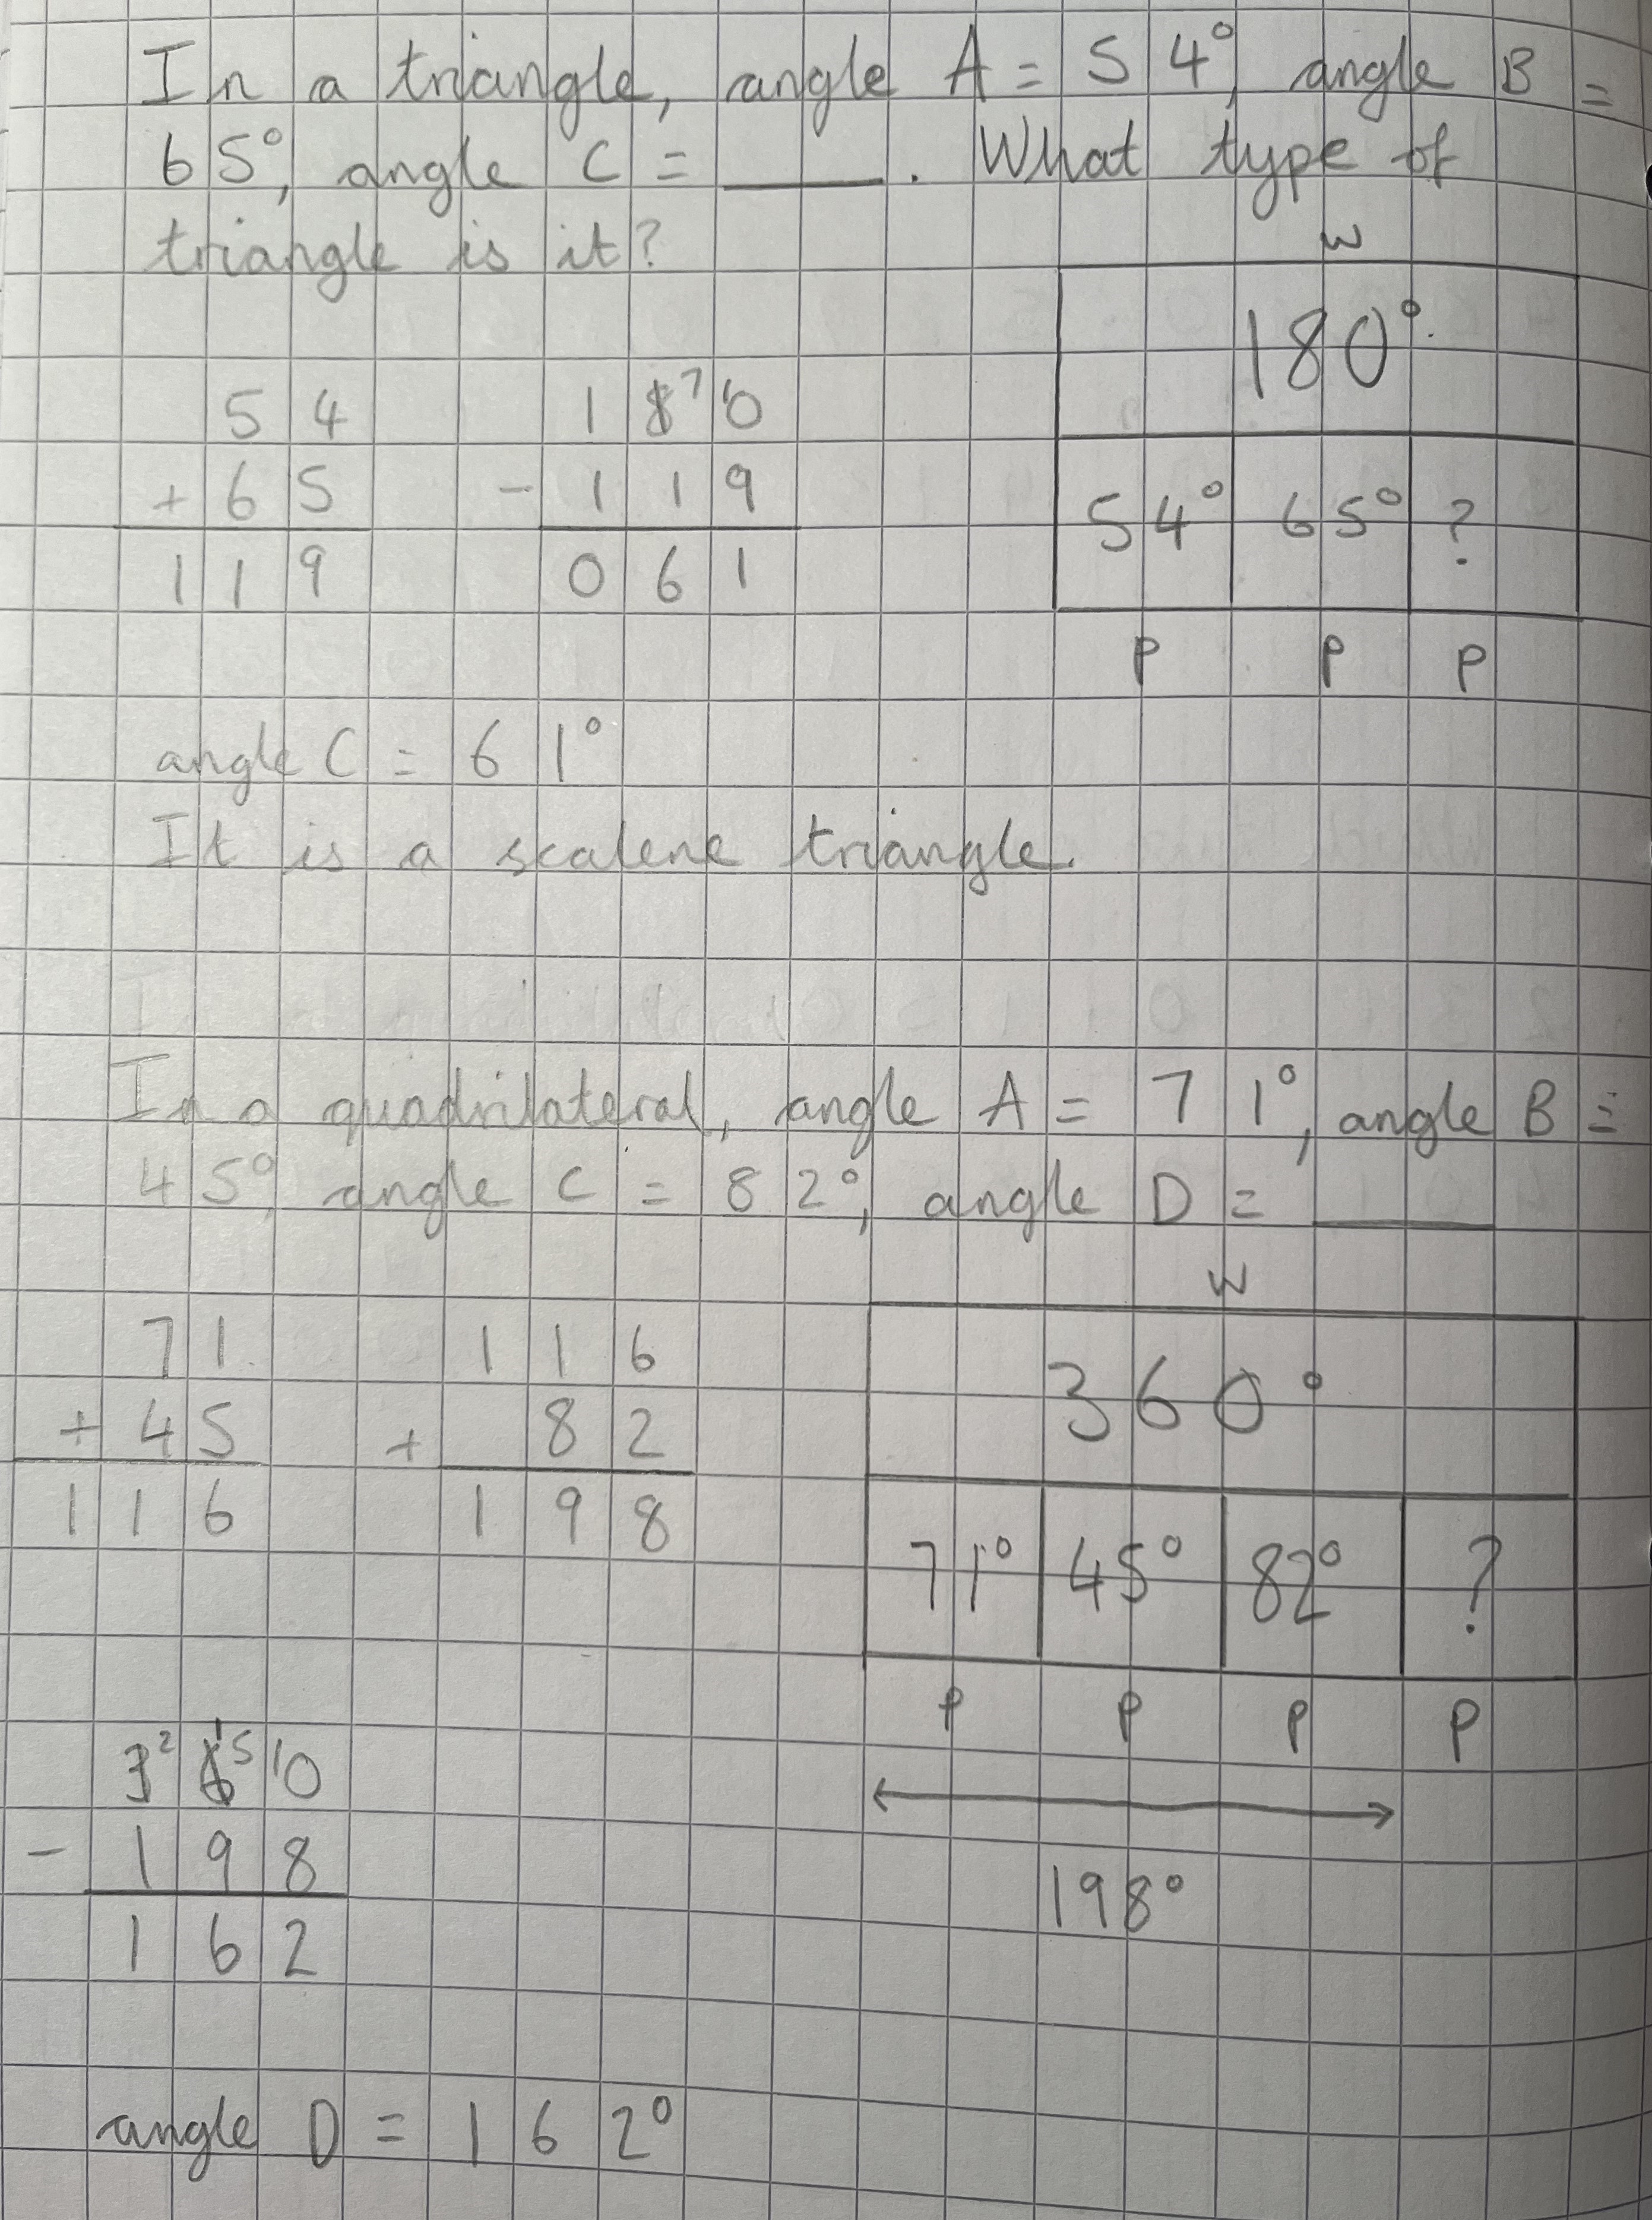 In a triangle, angle A = 54°, angle B =
65°, angle C = ____. What type of
triangle is it?
W
180°
54° 65° ?
P P P
54
+ 65
119
1 8 7 10
- 119
061
angle C = 61°
It is a scalene triangle.
In a quadrilateral, angle A = 71°, angle B =
45°, angle C = 82°, angle D = ____
W
360°
71° 45° 82° ?
P P P P
198°
71
+ 45
116
116
+ 82
198
3 2 6 15 10
- 198
162
angle D = 162°